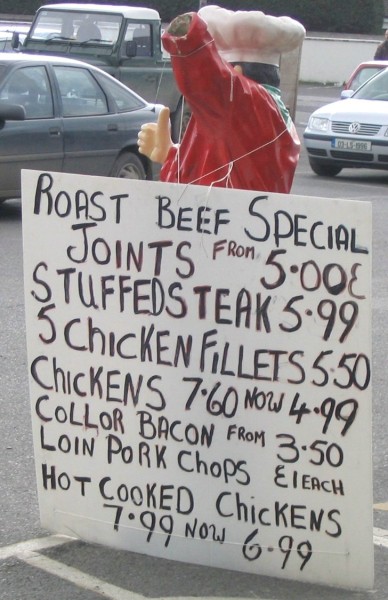 ROAST BEEF SPECIAL
JOINTS FROM 5.00€
STUFFED STEAK 5.99
5 CHICKEN FILLETS 5.50
CHICKENS 7.60 NOW 4.99
COLLOR BACON FROM 3.50
LOIN PORK CHOPS €1 EACH
HOT COOKED CHICKENS
7.99 NOW 6.99